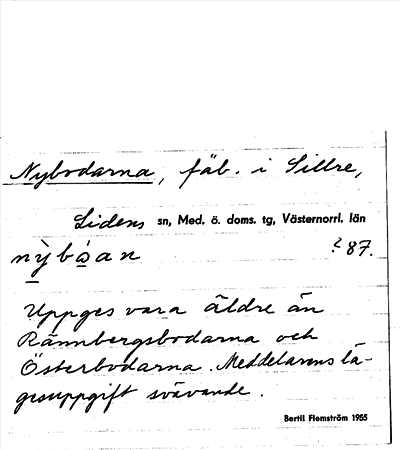 Nybodarna, fäb. i Sillre,
Lidens sn, Med. ö. doms. tg, Västernorrl. län
nỳbo̱an ? 87.
Uppges vara äldre än
Rännbergsbodarna och
Österbodarna. Meddelarens lä-
gesuppgift svävande.
Bertil Flemström 1955